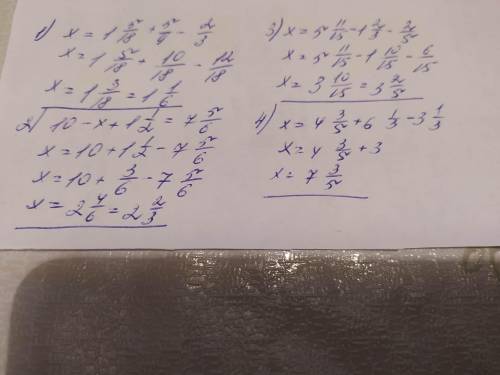 1) x = 1 5/18 + 5/9 - 2/3
x = 1 5/18 + 10/18 - 12/18
x = 1 3/18 = 1 1/6
2) 10 - x + 1 1/2 = 7 5/6
x = 10 + 1 1/2 - 7 5/6
x = 10 + 3/6 - 7 5/6
x = 2 4/6 = 2 2/3
3) x = 5 11/15 - 1 2/3 - 2/5
x = 5 11/15 - 1 10/15 - 6/15
x = 3 10/15 = 3 2/5
4) x = 4 3/5 + 6 1/3 - 3 1/3
x = 4 3/5 + 3
x = 7 3/5